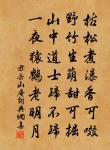 枯松煮瀑香可啜
野竹生萌甜可掘
山中道士歸不歸
一夜猿鶴老明月
方岳山庵詞典網